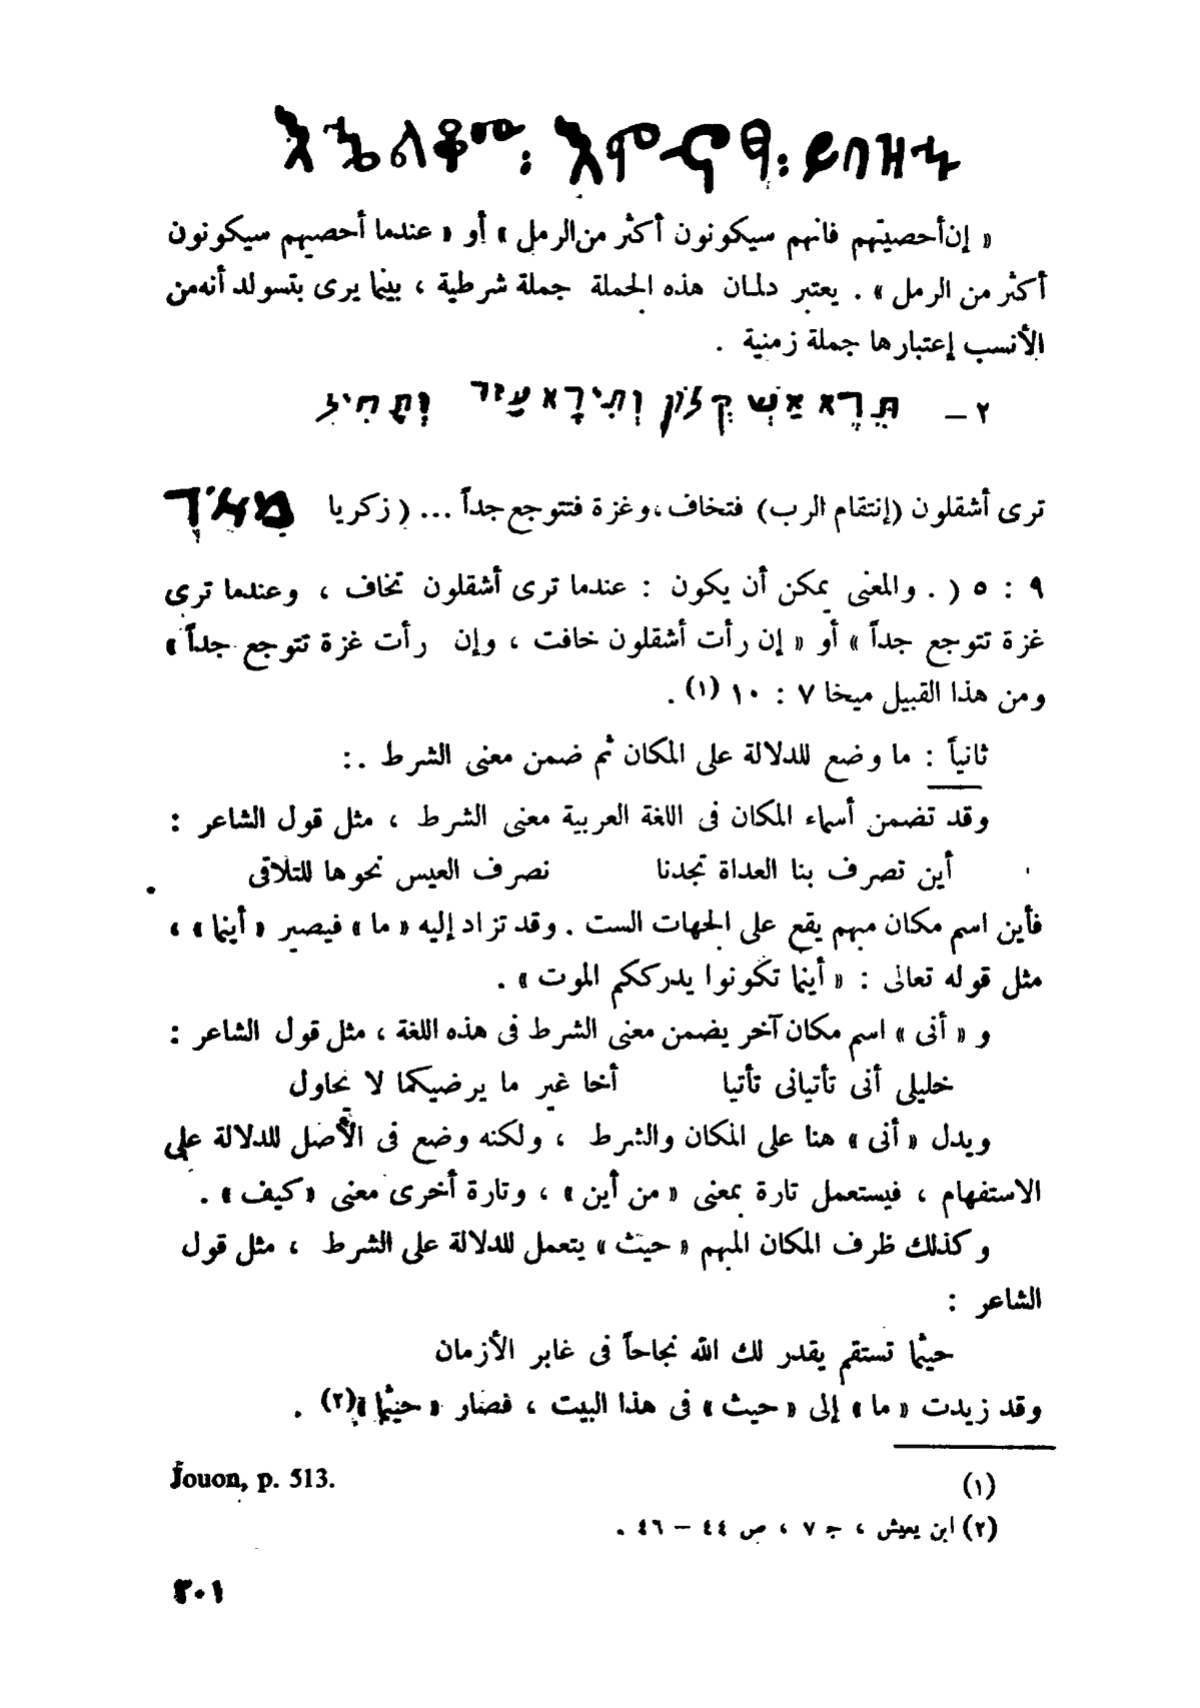 እኄልቆሙ፡ እምኖፃ፡ ይበዝኁ
« إن أحصيتهم فانهم سيكونون أكثر من الرمل » أو « عندما أحصيهم سيكونون
أكثر من الرمل » . يعتبر دلمان هذه الجملة جملة شرطية ، بينما يرى بتسولد أنه من
الأنسب إعتبارها جملة زمنية .
٢ – תֵּרֶא אַשְׁקְלוֹן וְתִירָא עַזָּה וְתָחִיל
ترى أشقلون (إنتقام الرب) فتخاف، وغزة فتتوجع جداً ... ( زكريا מְאֹד
٩ : ٥ ( . والمعنى يمكن أن يكون : عندما ترى أشقلون تخاف ، وعندما ترى
غزة تتوجع جداً » أو « إن رأت أشقلون خافت ، وإن رأت غزة تتوجع جداً »
ومن هذا القبيل ميخا ٧ : ١٠ (١) .
ثانياً : ما وضع للدلالة على المكان ثم ضمن معنى الشرط .:
وقد تضمن أسماء المكان فى اللغة العربية معنى الشرط ، مثل قول الشاعر :
أين تصرف بنا العداة تجدنا نصرف العيس نحوها للتلاقى .
فأين اسم مكان مبهم يقع على الجهات الست . وقد تزاد إليه « ما » فيصير « أينما » ،
مثل قوله تعالى : « أينما تكونوا يدرككم الموت » .
و « أنى » اسم مكان آخر يضمن معنى الشرط فى هذه اللغة ، مثل قول الشاعر :
خليلى أنى تأتيانى تأتيا أخا غير ما يرضيكما لا يحاول
ويدل « أنى » هنا على المكان والشرط ، ولكنه وضع فى الأصل للدلالة على
الاستفهام ، فيستعمل تارة بمعنى « من أين » ، وتارة أخرى معنى « كيف » .
وكذلك ظرف المكان المبهم « حيث » يتعمل للدلالة على الشرط ، مثل قول
الشاعر :
حيثما تستقم يقدر لك الله نجاحاً فى غابر الأزمان
وقد زيدت « ما » إلى « حيث » فى هذا البيت ، فصار « حيثما »(٢) .
(١) Jouon, p. 513.
(٢) ابن يعيش ، ج ٧ ، ص ٤٤ – ٤٦ .
٣٠١